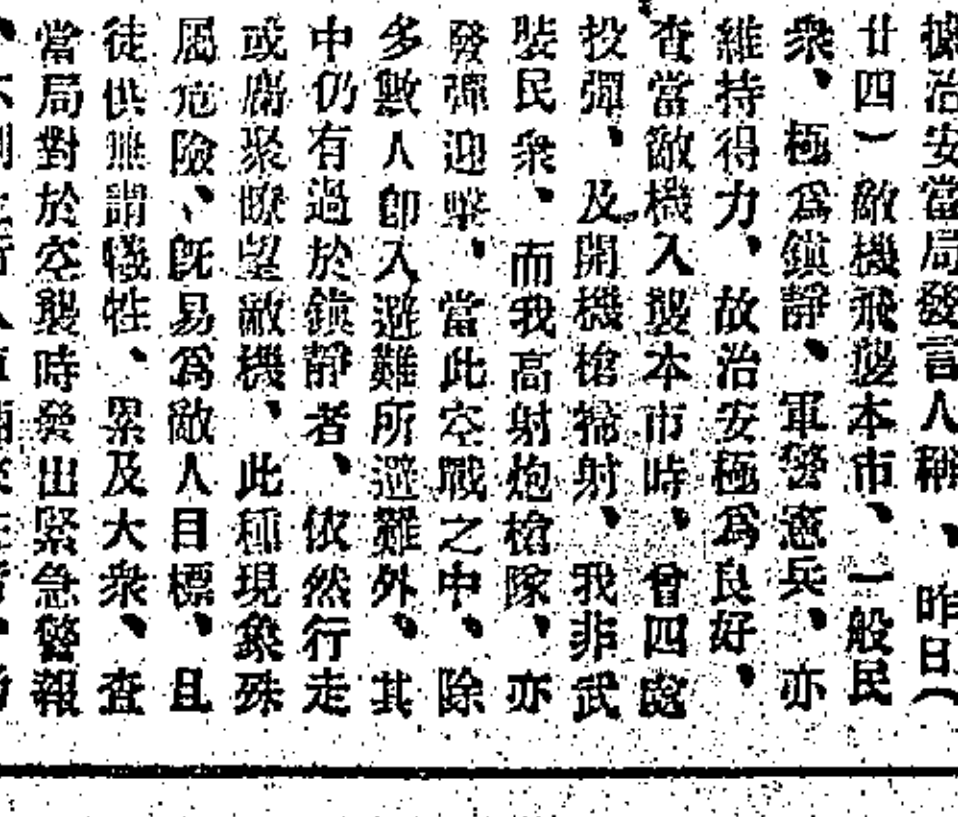 據治安當局發言人稱、昨日(
廿四)敵機飛襲本市、一般民
衆、極爲鎭靜、軍警憲兵、亦
維持得力、故治安極爲良好、
查當敵機入襲本市時、曾四處
投彈、及開機槍掃射、我非武
裝民衆、而我高射炮槍隊、亦
發彈迎擊、當此空戰之中、除
多數人卽入避難所避難外、其
中仍有過於鎭靜者、依然行走
或屬聚瞭望敵機、此種現象殊
屬危險、旣易爲敵人目標、且
徒供無謂犧牲、累及大衆、查
當局對於空襲時發出緊急警報